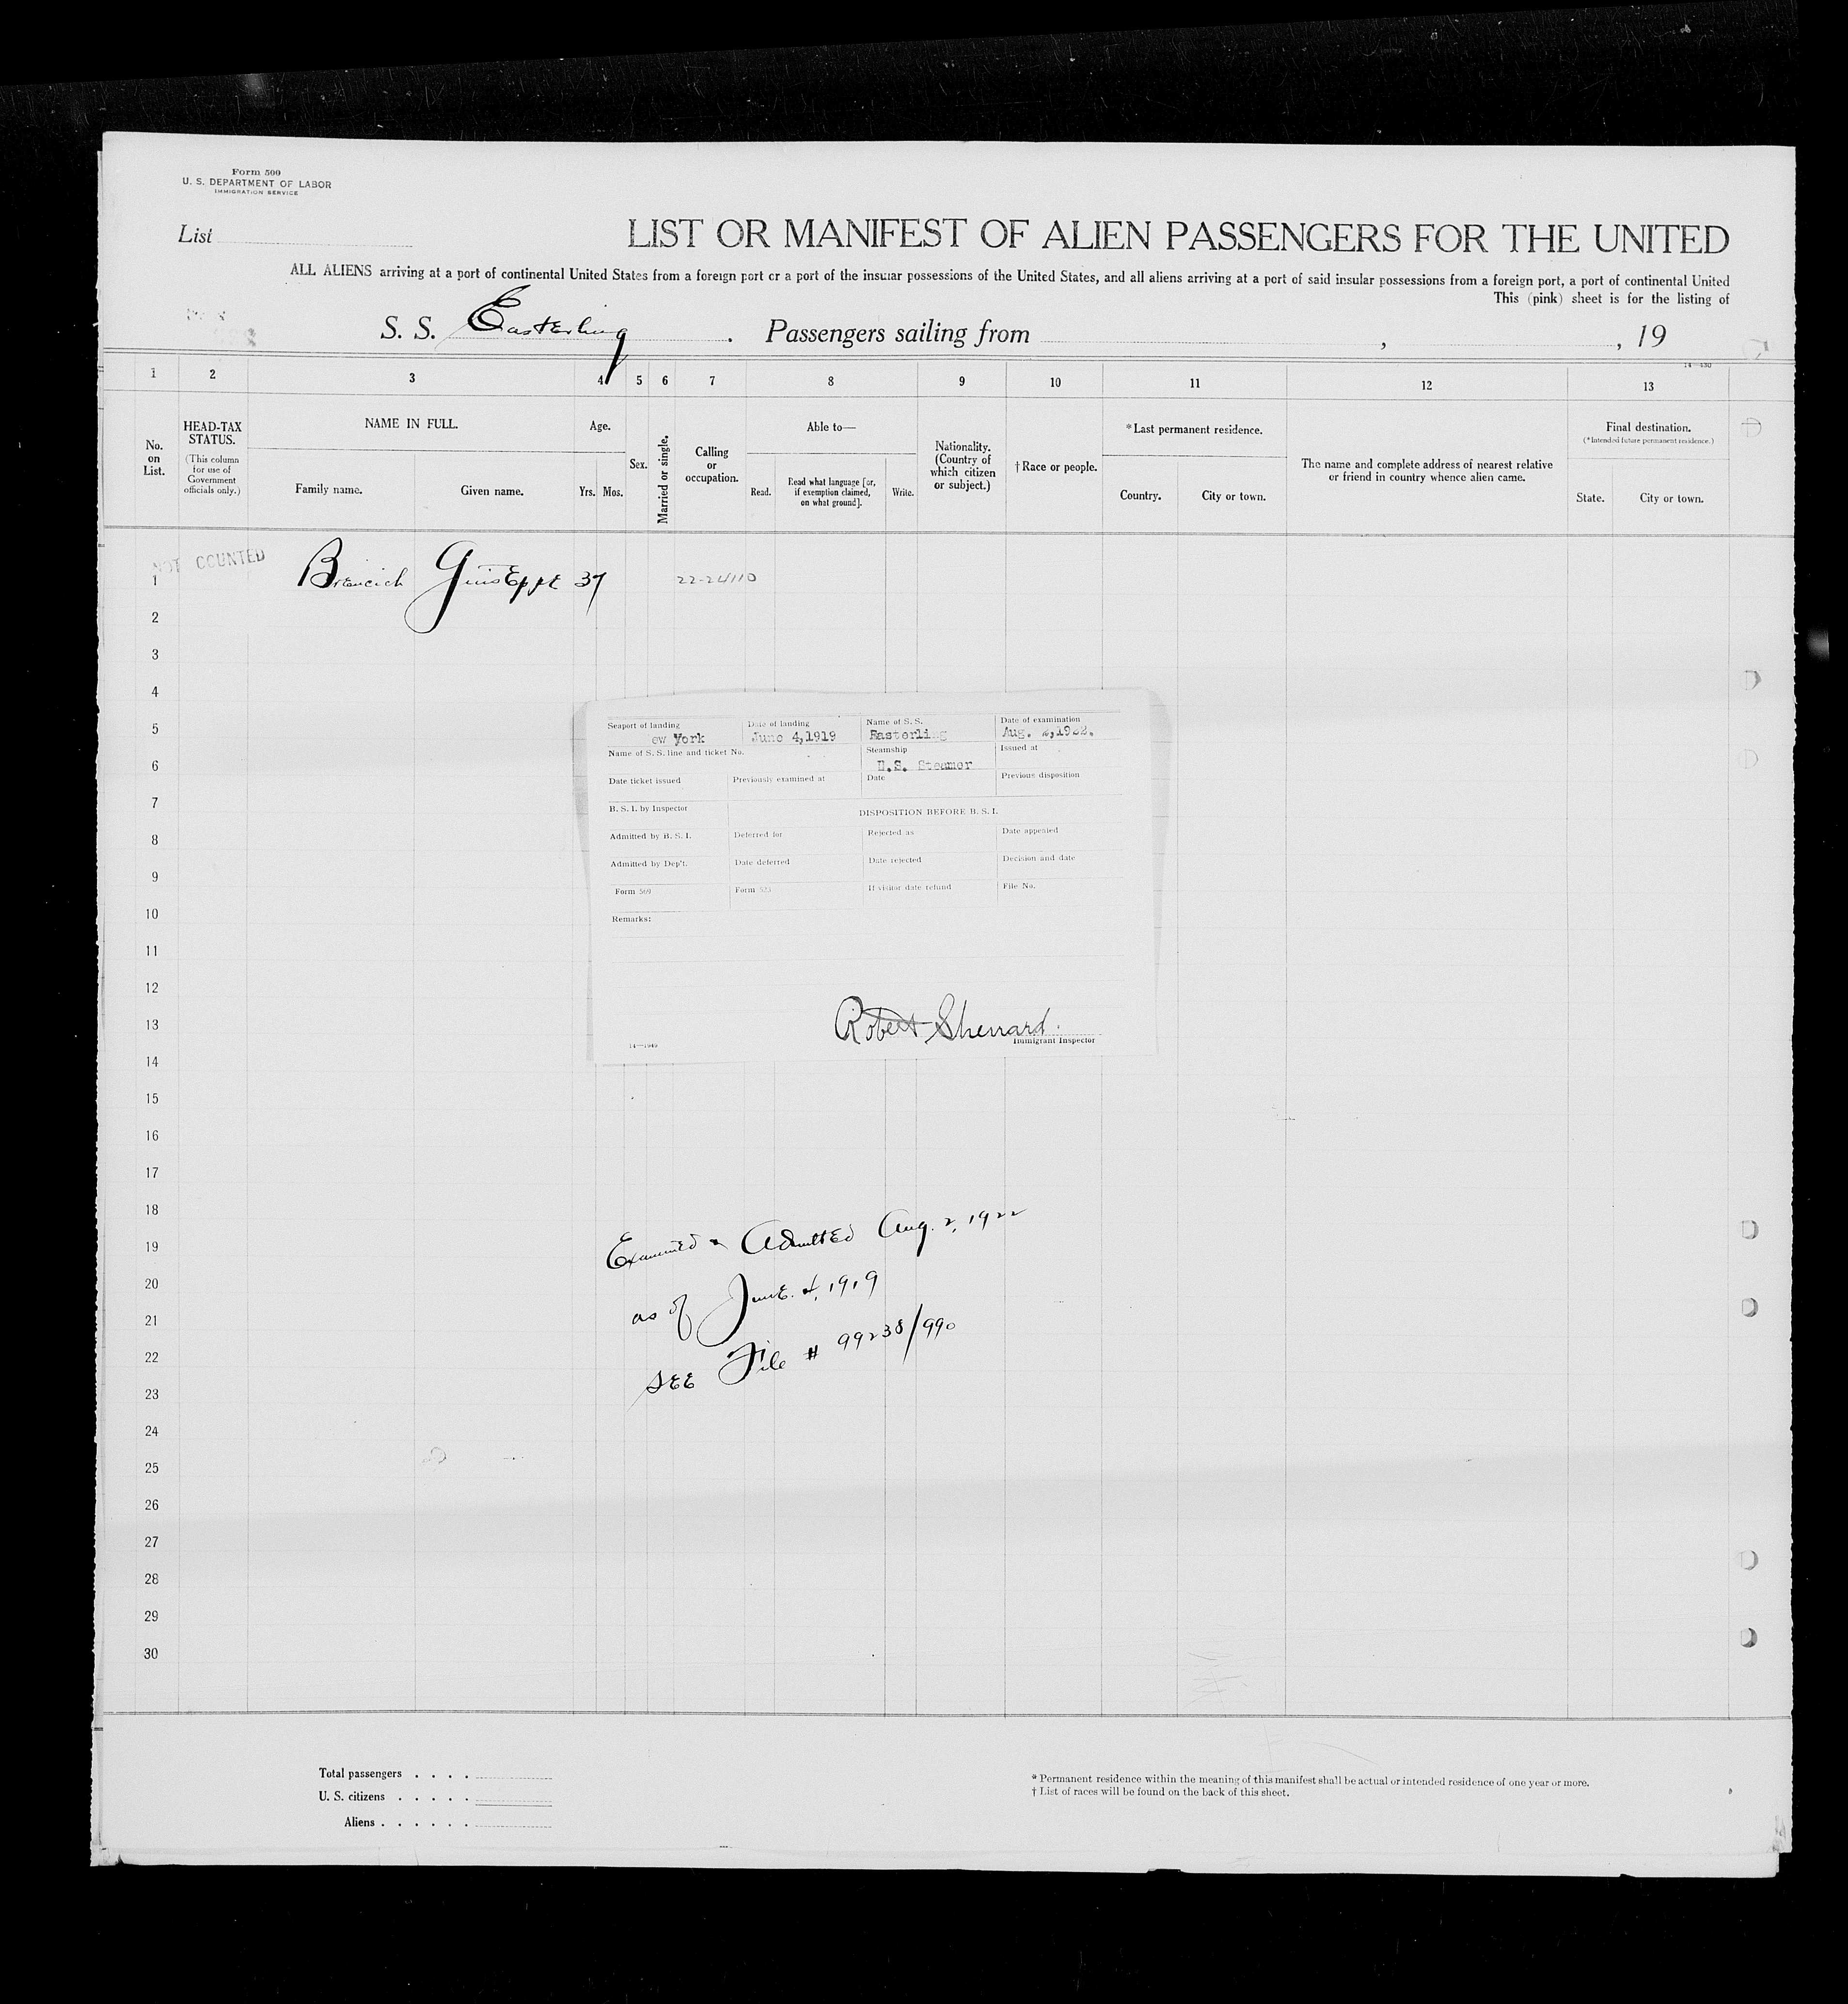 Form 500
U. S. DEPARTMENT OF LABOR
IMMIGRATION SERVICE
List
LIST OR MANIFEST OF ALIEN PASSENGERS FOR THE UNITED
ALL ALIENS arriving at a port of continental United States from a foreign port or a port of the insular possessions of the United States, and all aliens arriving at a port of said insular possessions from a foreign port, a port of continental United
This (pink) sheet is for the listing of
S. S. Easterling. Passengers sailing from , , 19
14—430
1 2 3 4 5 6 7 8 9 10 11 12 13
No. on List.
HEAD-TAX STATUS.
(This column for use of Government officials only.)
NAME IN FULL.
Family name.
Given name.
Age.
Yrs. Mos.
Sex.
Married or single.
Calling or occupation.
Able to—
Read.
Read what language [or, if exemption claimed, on what ground].
Write.
Nationality. (Country of which citizen or subject.)
† Race or people.
* Last permanent residence.
Country.
City or town.
The name and complete address of nearest relative or friend in country whence alien came.
Final destination.
(* Intended future permanent residence.)
State.
City or town.
NOT COUNTED
1 Brencich Giuseppe 37 22-24110
2
3
4
5
6
7
8
9
10
11
12
13
14
15
16
17
18
19
20
21
22
23
24
25
26
27
28
29
30
Seaport of landing Date of landing Name of S. S. Date of examination
ew York June 4,1919 Easterling Aug. 2,1922.
Name of S. S. line and ticket No. Steamship Issued at
U.S. Steamer
Date ticket issued Previously examined at Date Previous disposition
B. S. I. by Inspector DISPOSITION BEFORE B. S. I.
Admitted by B. S. I. Deferred for Rejected as Date appealed
Admitted by Dep't. Date deferred Date rejected Decision and date
Form 569 Form 523 If visitor date refund File No.
Remarks:
Robert Sherrard.
14—1949 Immigrant Inspector
Examined & Admitted Aug. 2, 1922
as of June 4, 1919
see File # 99238/990
Total passengers . . . .
U. S. citizens . . . . .
Aliens . . . . . .
* Permanent residence within the meaning of this manifest shall be actual or intended residence of one year or more.
† List of races will be found on the back of this sheet.